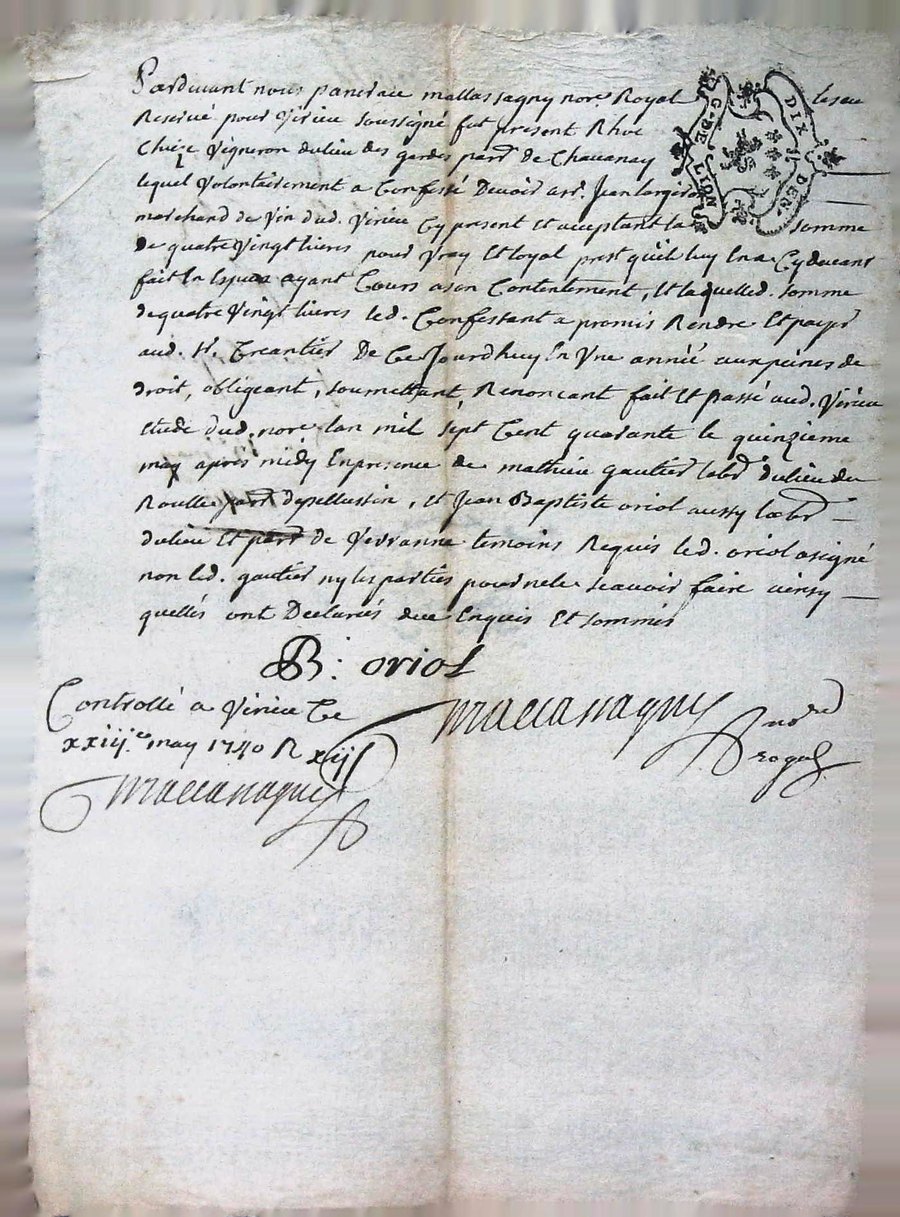 Pardevant nous pancrace mallassagny nore. Royal
G. DE LION
DIX DEN.
Reservé pour Virieu soussigné fut present
Vigneron dulieu des gardes parr. de Chavanay
lequel Volontairement a Confessé Devoir a sr. Jean
marchand de Vin dud. Virieu Cy present et acceptant la somme
de quatre Vingt livres pour Vray Et loyal prest qu'il luy En a Cydevant
fait En Espces ayant Cours a son Contentement, Et laquelled. somme
de quatre Vingt livres led. Confessant a promis Rendre Et payer
aud. Sr. Creantier De Ce Jourdhuy En Une année aux peines de
droit, obligeant, soumettant, Renoncant fait Et passé aud. Virieu
Etude dud. nore. lan mil sept Cent quarante le quinzieme
may apres midy En presence de mathieu gautier labr. dulieu du
parr. depellussin, Et Jean Baptiste oriol aussy labr.
dulieu Et parr. de Veranne temoins Requis led. oriol a signé
non led. gautier ny les parties pour ne le scavoir faire ainsy
quelles ont Declarés due Enquis Et sommés
B: oriol
Controllé a Virieu Ce
xxiij.e may 1740 R xij s
nore
royal